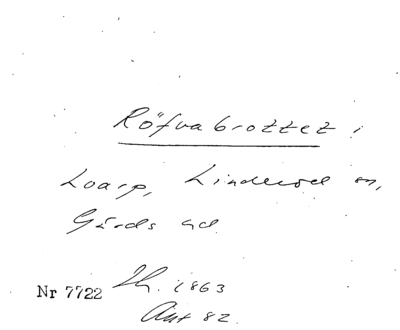 Röfvabrottet i
Loarp, Linderöd sn,
Gärds hd
Nr 7722 Th. 1863
Ant 82.